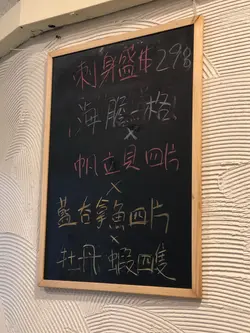 刺身盛体298
海膽一格
×
帆立貝四片
×
藍右拿魚四片
×
牡丹蝦四隻